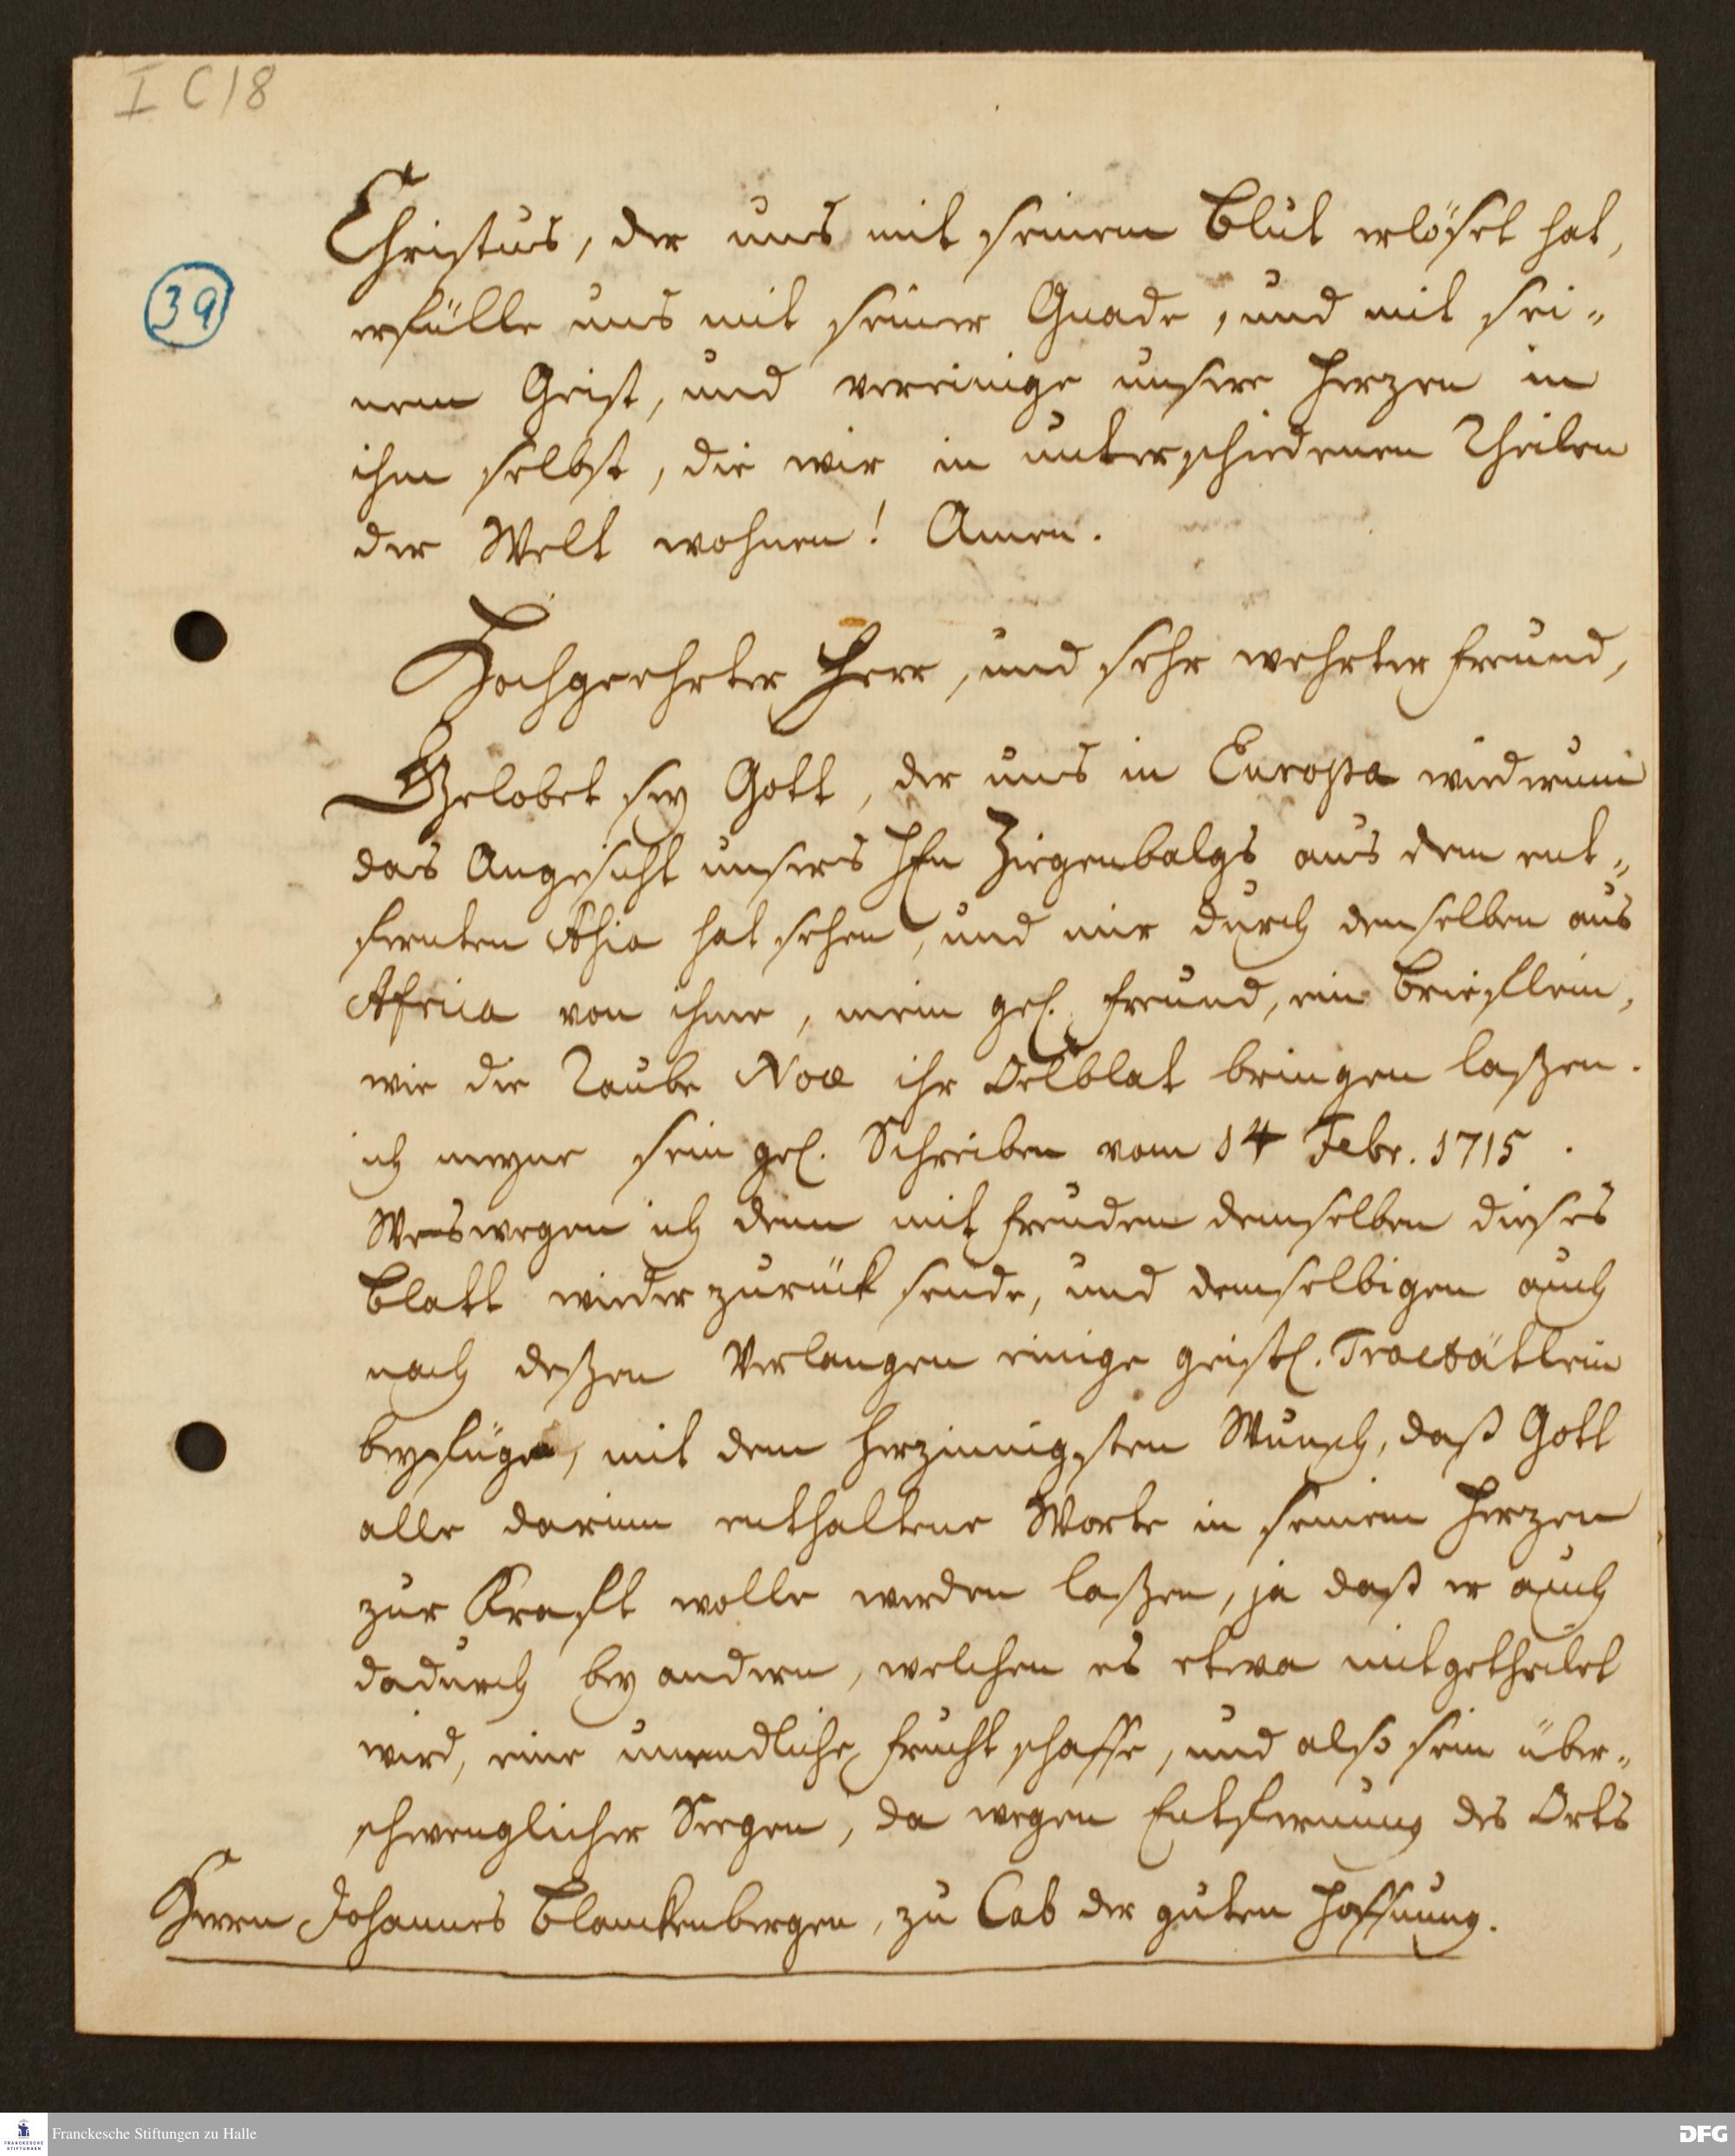 I C 18
39
Christus, der uns mit seinem Blut erlöset hat,
erfülle uns mit seiner Gnade, und mit sei-
nem Geist, und vereinige unsere Herzen in
ihm selbst, die wir in unterschiedenen Theilen
der Welt wohnen! Amen.
Hochgeehrter Herr, und sehr wehrter Freund,
Gelobet sey Gott, der uns in Europa wiederum
das Angesicht unsers Hn Ziegenbalgs aus dem ent-
fernten Asia hat sehen, und mir durch denselben aus
Africa von ihme, mein gel. Freund, ein Brieflein,
wie die Taube Noæ ihr Oelblat bringen laßen.
ich meyne sein gel. Schreiben vom 14 Febr. 1715.
Weswegen ich denn mit Freuden demselben dieses
Blatt wieder zurück sende, und demselbigen auch
nach deßen Verlangen einige geistl. Tractätlein
beyfüge, mit dem herzinnigsten Wunsch, daß Gott
alle darinn enthaltene Worte in seinem Herzen
zur Krafft wolle werden laßen, ja daß er auch
dadurch bey andern, welchen es etwa mitgetheilet
wird, eine unendliche Frucht schaffe, und also sein über-
schwenglicher Seegen, da wegen Entfernung des Orts
Herrn Johannes Blanckenbergen, zu Cab der guten Hoffnung.
Franckesche Stiftungen zu Halle
DFG